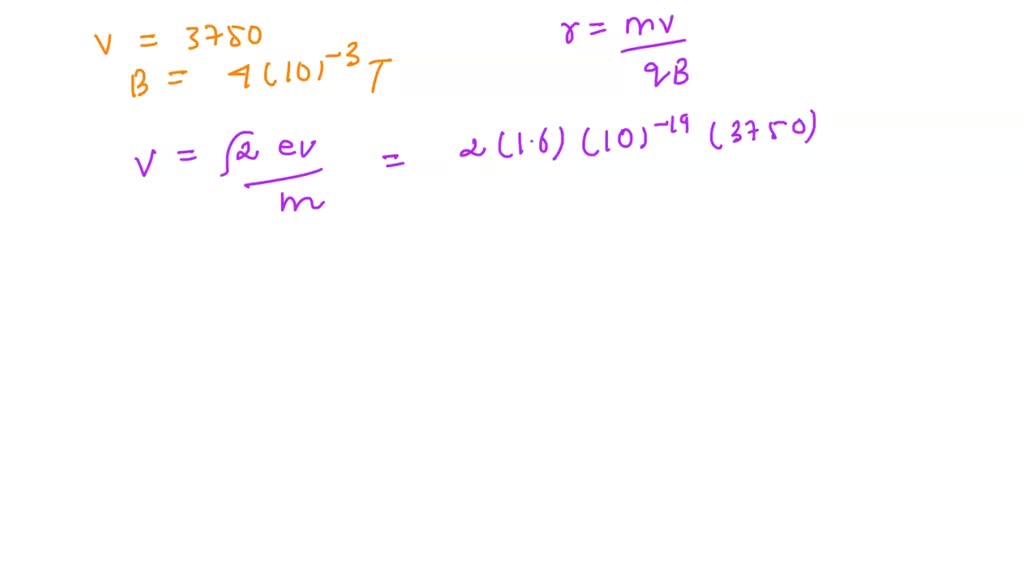 V = 3750
B = 4(10)^-3 T
r = mv / qB
v = √2 ev / m = 2(1.6)(10)^-19 (3750)